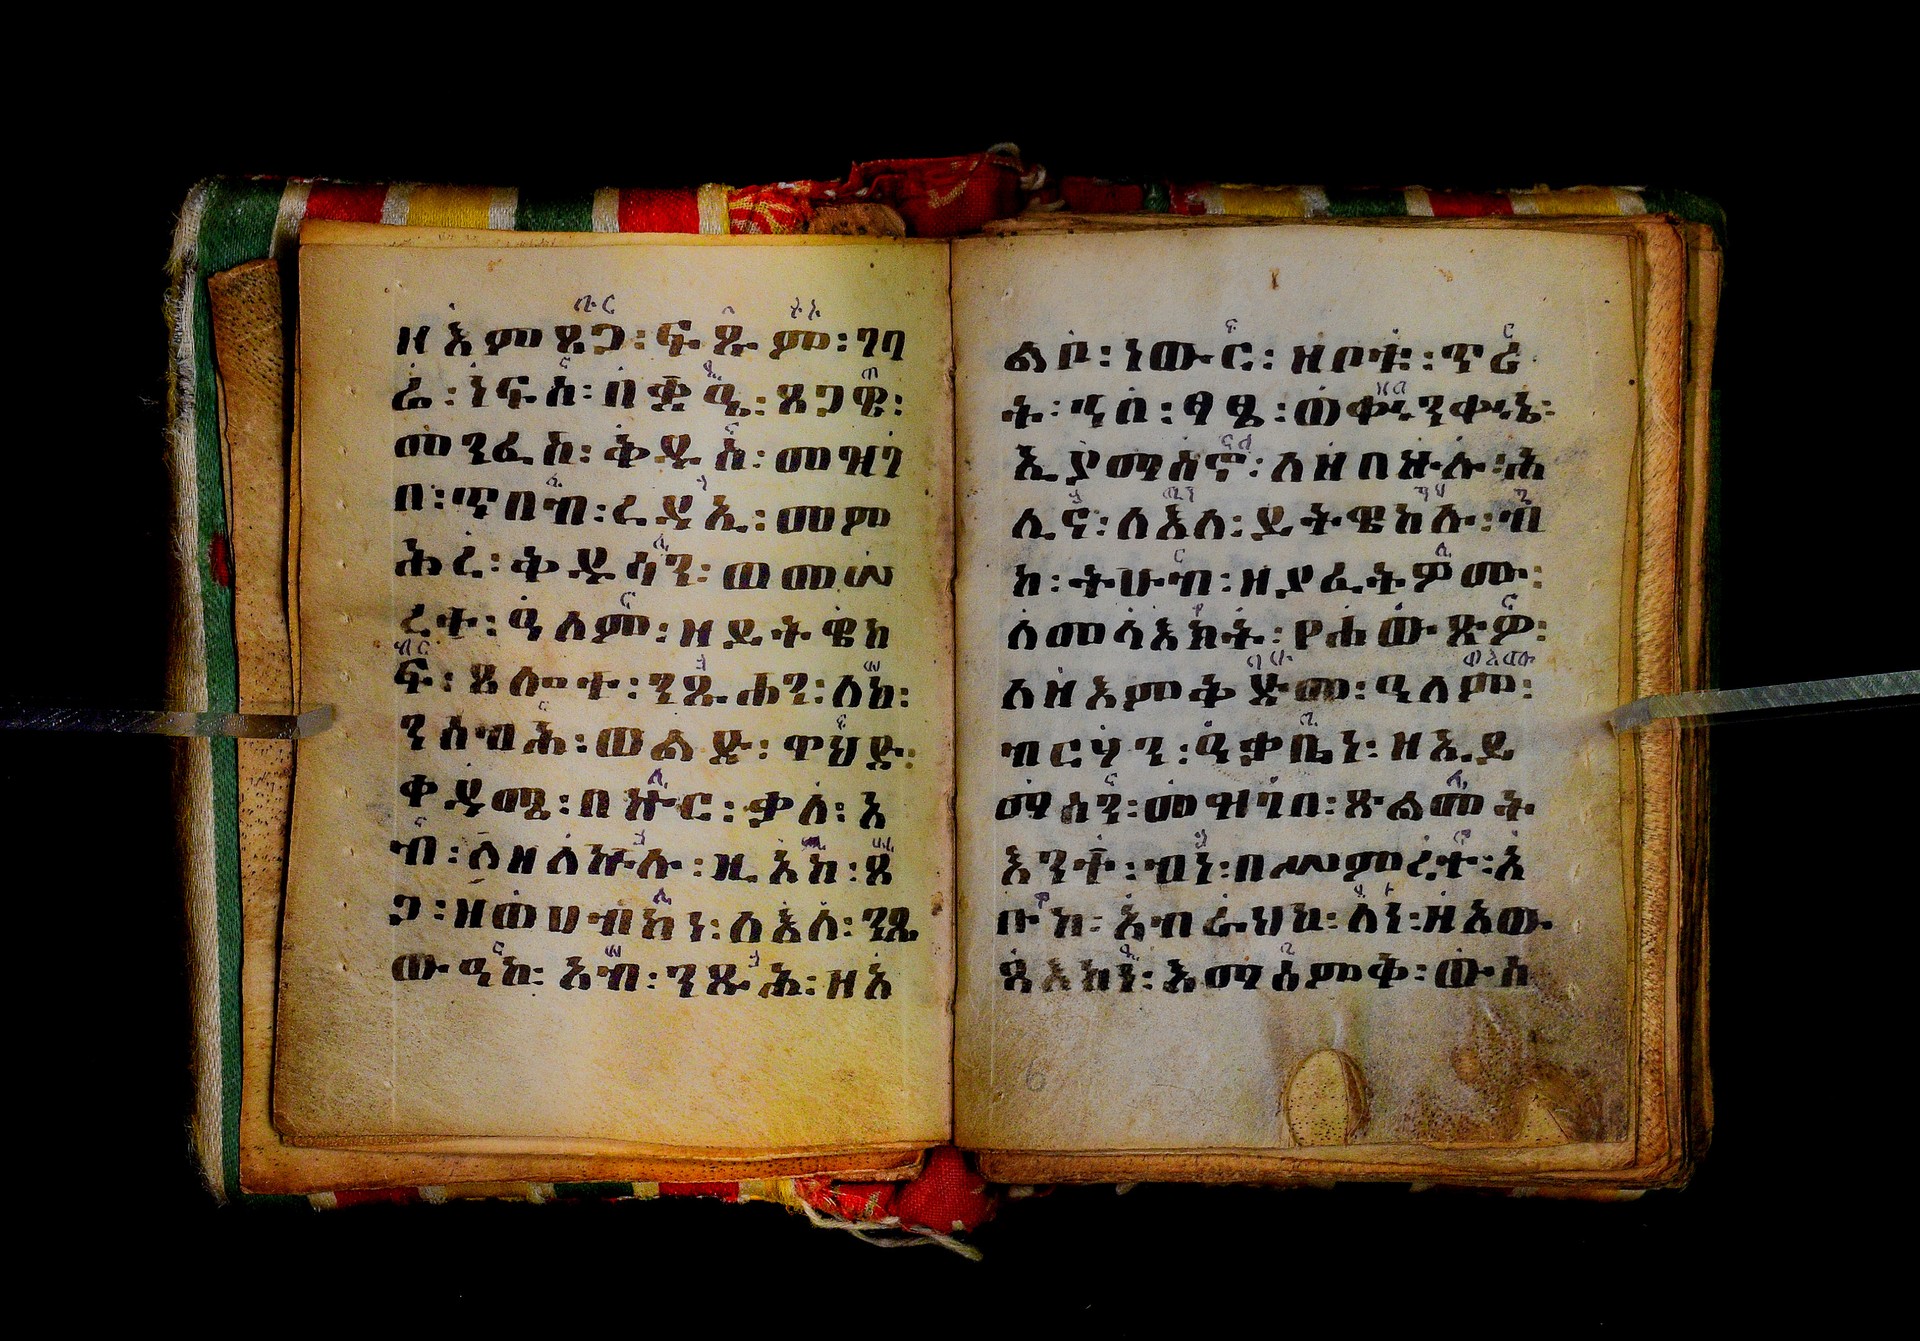 ዘእምጸጋ፡ ፍጹም፡ ገባ
ሬ፡ ነፍስ፡ በቋዔ፡ ጸጋዊ፡
መንፈስ፡ ቅዱስ፡ መዝገ
በ፡ ጥበብ፡ ረዳኢ፡ መም
ሕረ፡ ቅዱሳን፡ ወመሠ
ረተ፡ ዓለም፡ ዘይትዌከ
ፍ፡ ጸሎተ፡ ንጹሐን፡ ለከ፡
ንሴብሕ፡ ወልድ፡ ዋህድ፡
ቀዳሜ፡ በኵር፡ ቃለ፡ አ
ብ፡ ለዘለኵሉ፡ ዚአከ፡ ጸ
ጋ፡ ዘወሀብከነ፡ ለእለ፡ ንጼ
ውዓከ፡ አብ፡ ንጹሕ፡ ዘአ
ልቦ፡ ነውር፡ ዘቦቱ፡ ጥሪ
ት፡ ኀበ፡ ፃፄ፡ ወቍንቍኔ፡
ኢያማስኖ፡ ለዘበኵሉ፡ ሕ
ሊና፡ ለእለ፡ ይትዌከሉ፡ ብ
ከ፡ ትሁብ፡ ዘያፈትዎሙ፡
ለመላእክት፡ የሐውጽዎ፡
ለዘእምቅድመ፡ ዓለም፡
ብርሃን፡ ዓቃቤነ፡ ዘኢይ
ማስን፡ መዝገበ፡ ጽልመት
እንተ፡ ብነ፡ በሥምረተ፡ አ
ቡከ፡ አብራህከ፡ ለነ፡ ዘአው
ጻእከነ፡ እማዕምቅ፡ ውስ